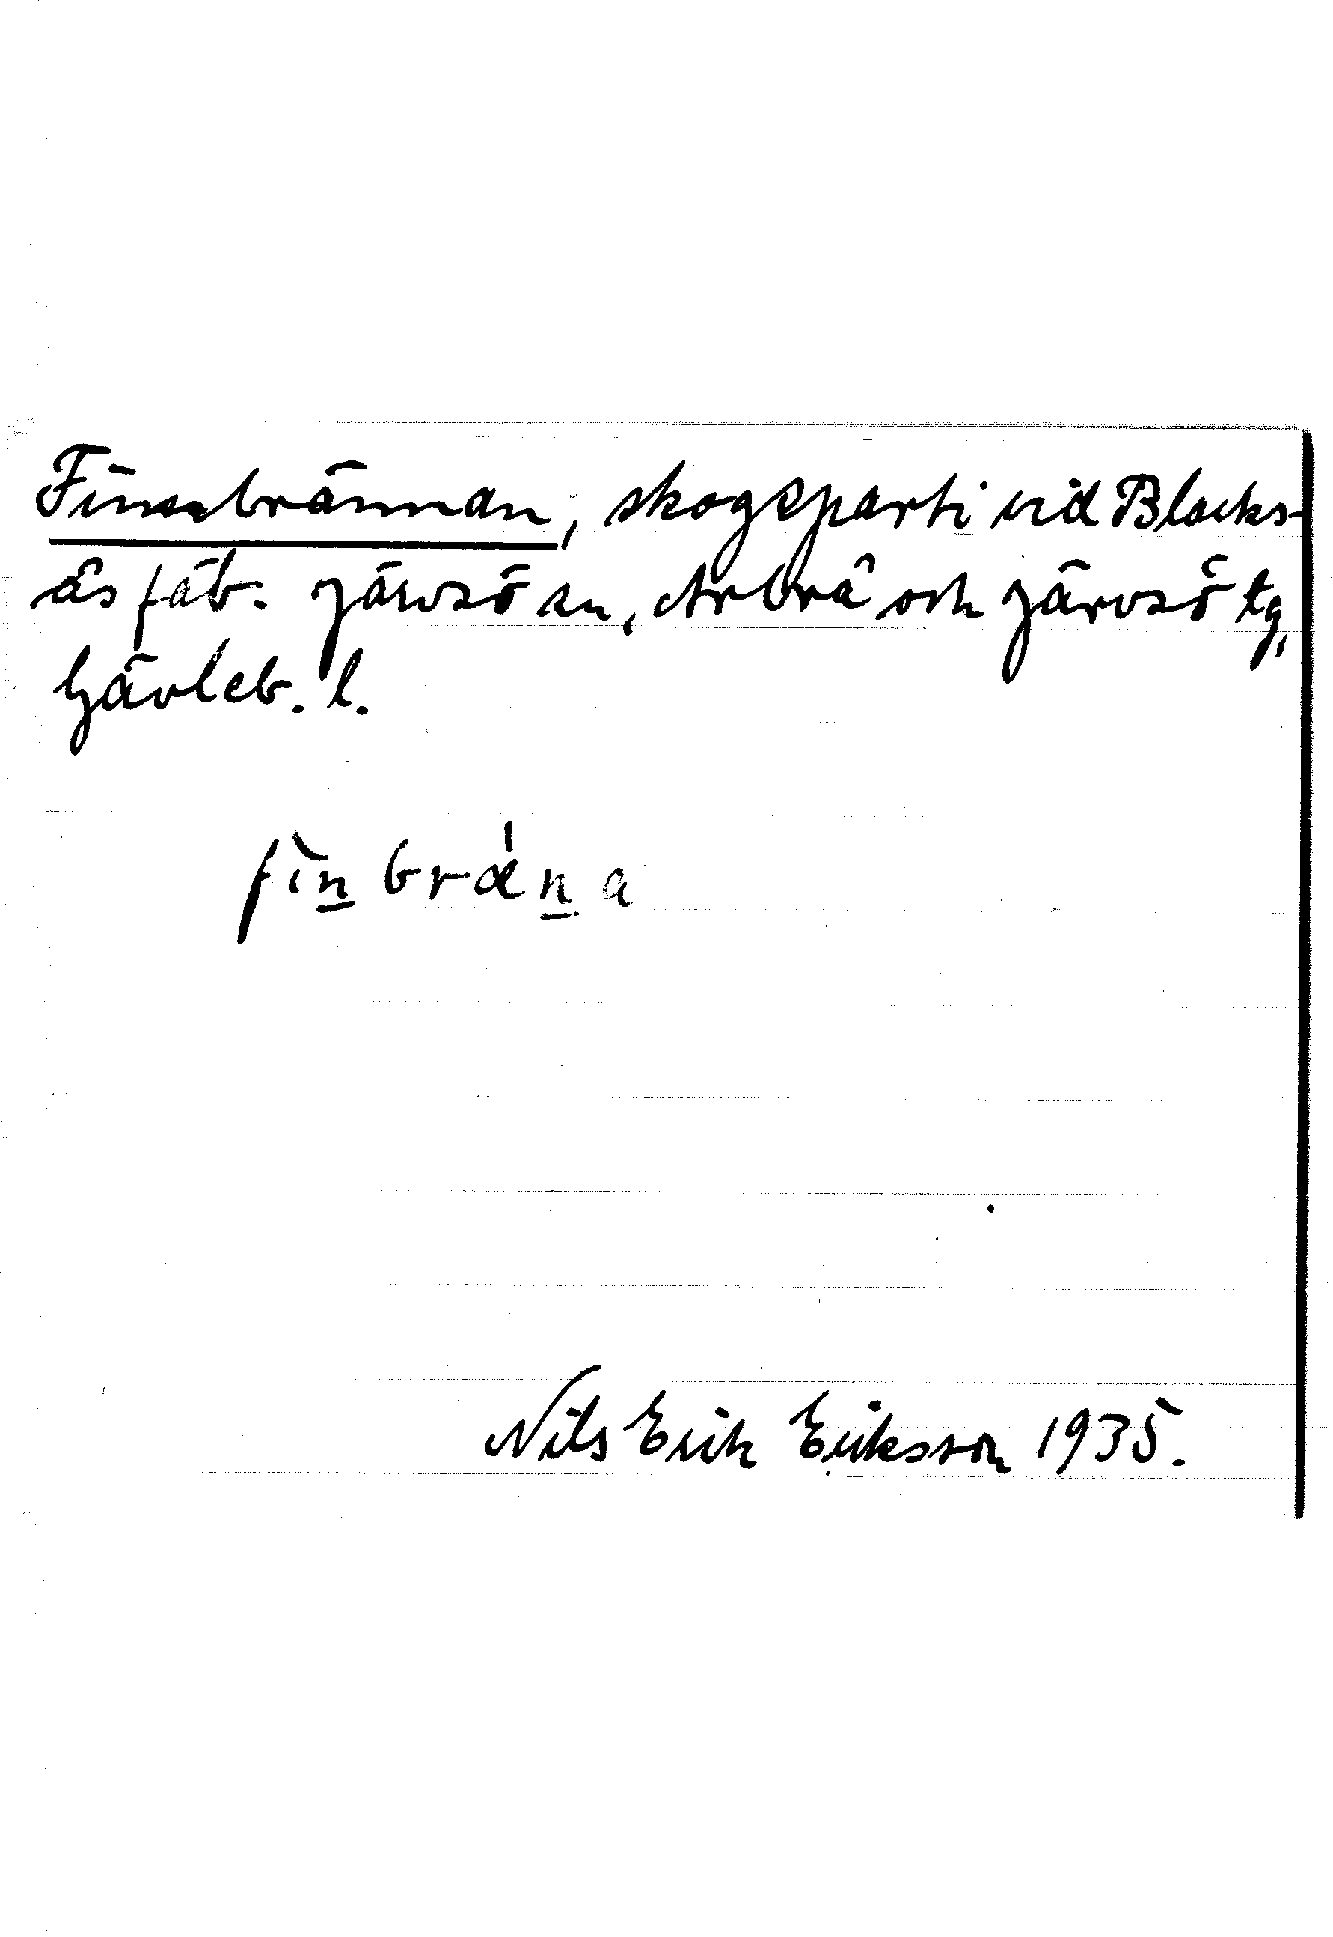 Finnbrännan, skogsparti vid Blacks-
ås fäb. Järvsö sn, Arbrå och Järvsö tg,
Gävleb. l.
fìn bræ̍n a
Nils Erik Eriksson 1935.